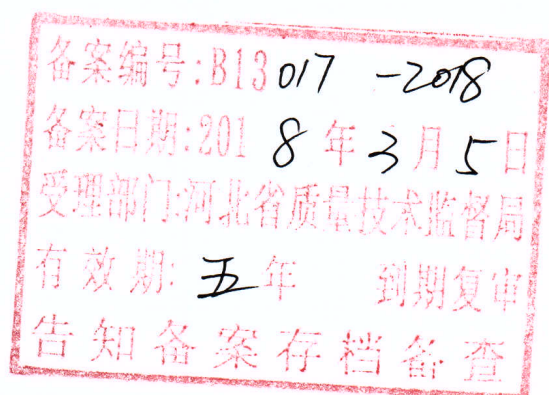 备案编号:B13017-2018
备案日期:2018年3月5日
受理部门:河北省质量技术监督局
有效期:五年 到期复审
告知备案存档备查